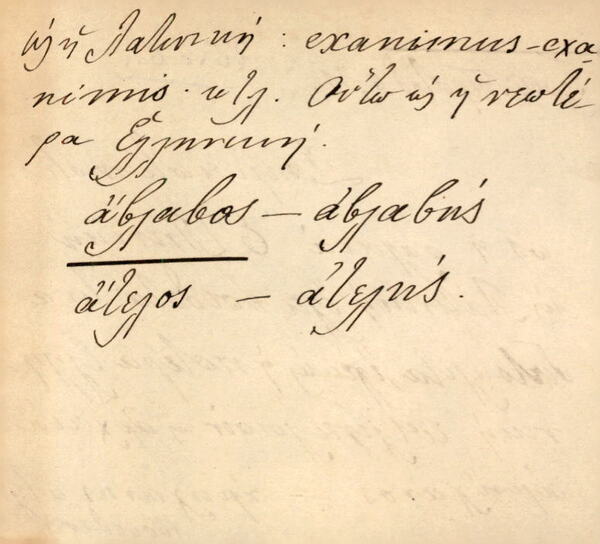 ὡς ἡ Λατινική: exanimus-exa-
nimis. κτλ. Οὕτω ὡς ἡ νεωτέ-
ρα Ἑλληνική.
ἄβλαβος — ἀβλαβής
ἄτελος — ἀτελής.